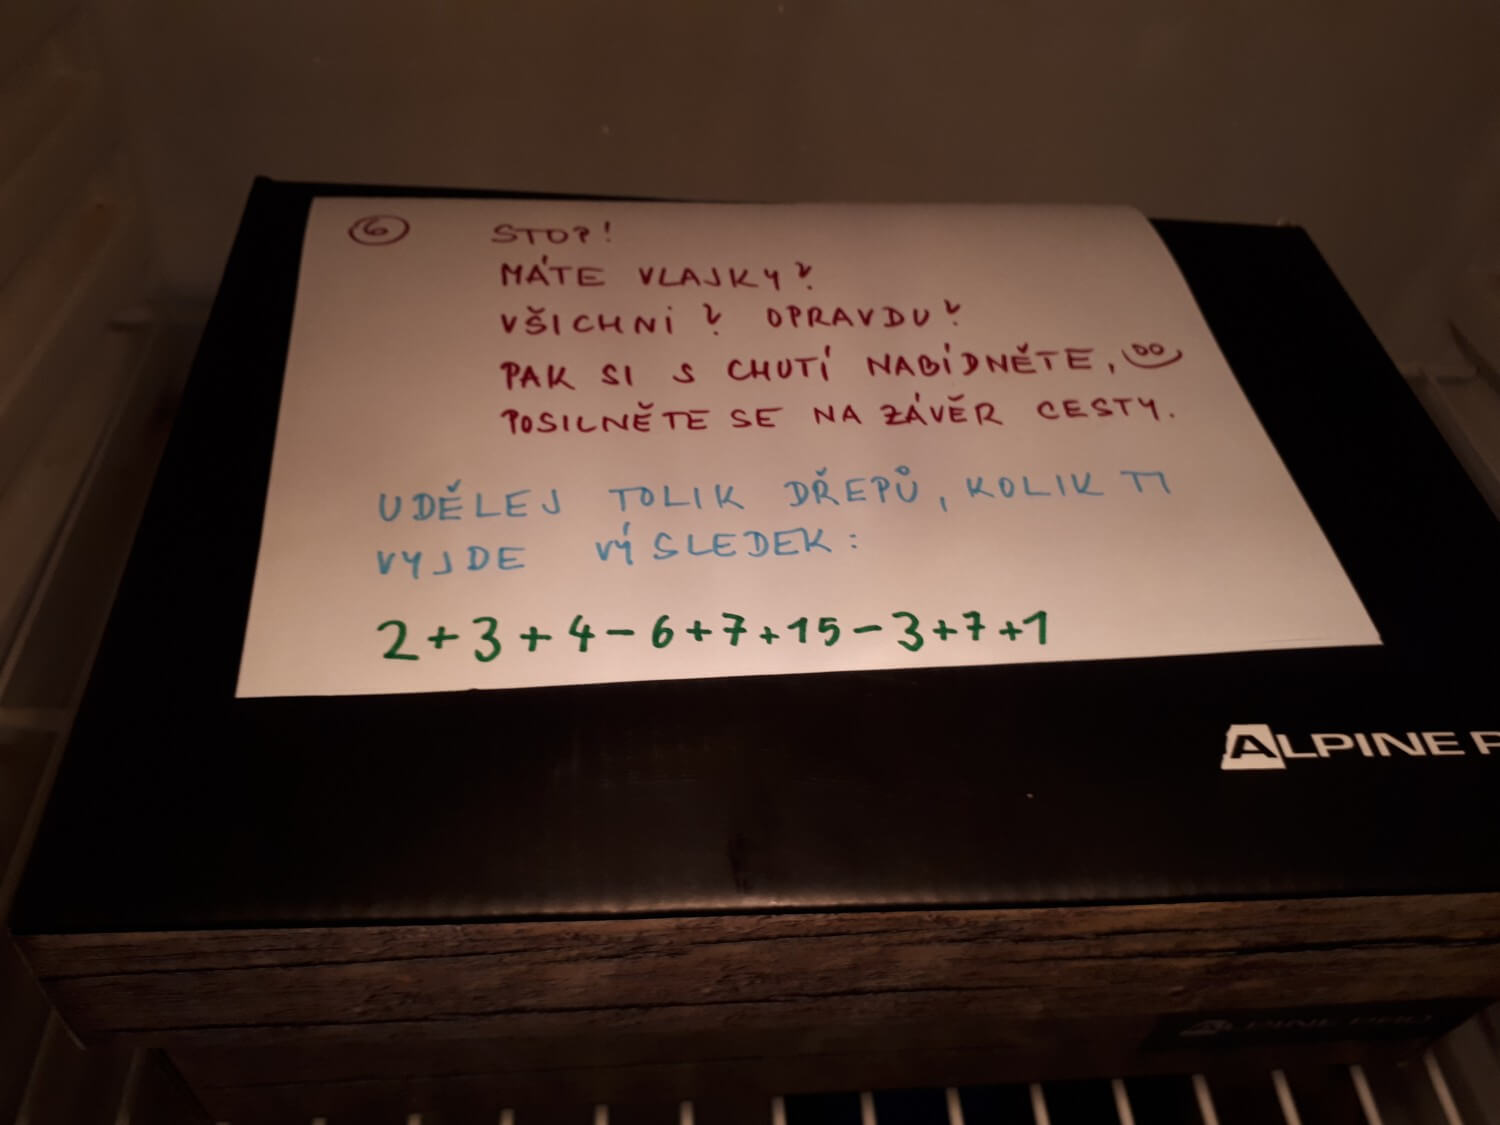 6
STOP!
MÁTE VLAJKY?
VŠICHNI? OPRAVDU?
PAK SI S CHUTÍ NABÍDNĚTE,
POSILNĚTE SE NA ZÁVĚR CESTY.
UDĚLEJ TOLIK DŘEPŮ, KOLIK TI
VYJDE VÝSLEDEK:
2+3+4-6+7+15-3+7+1
ALPINE P
ALPINE PRO